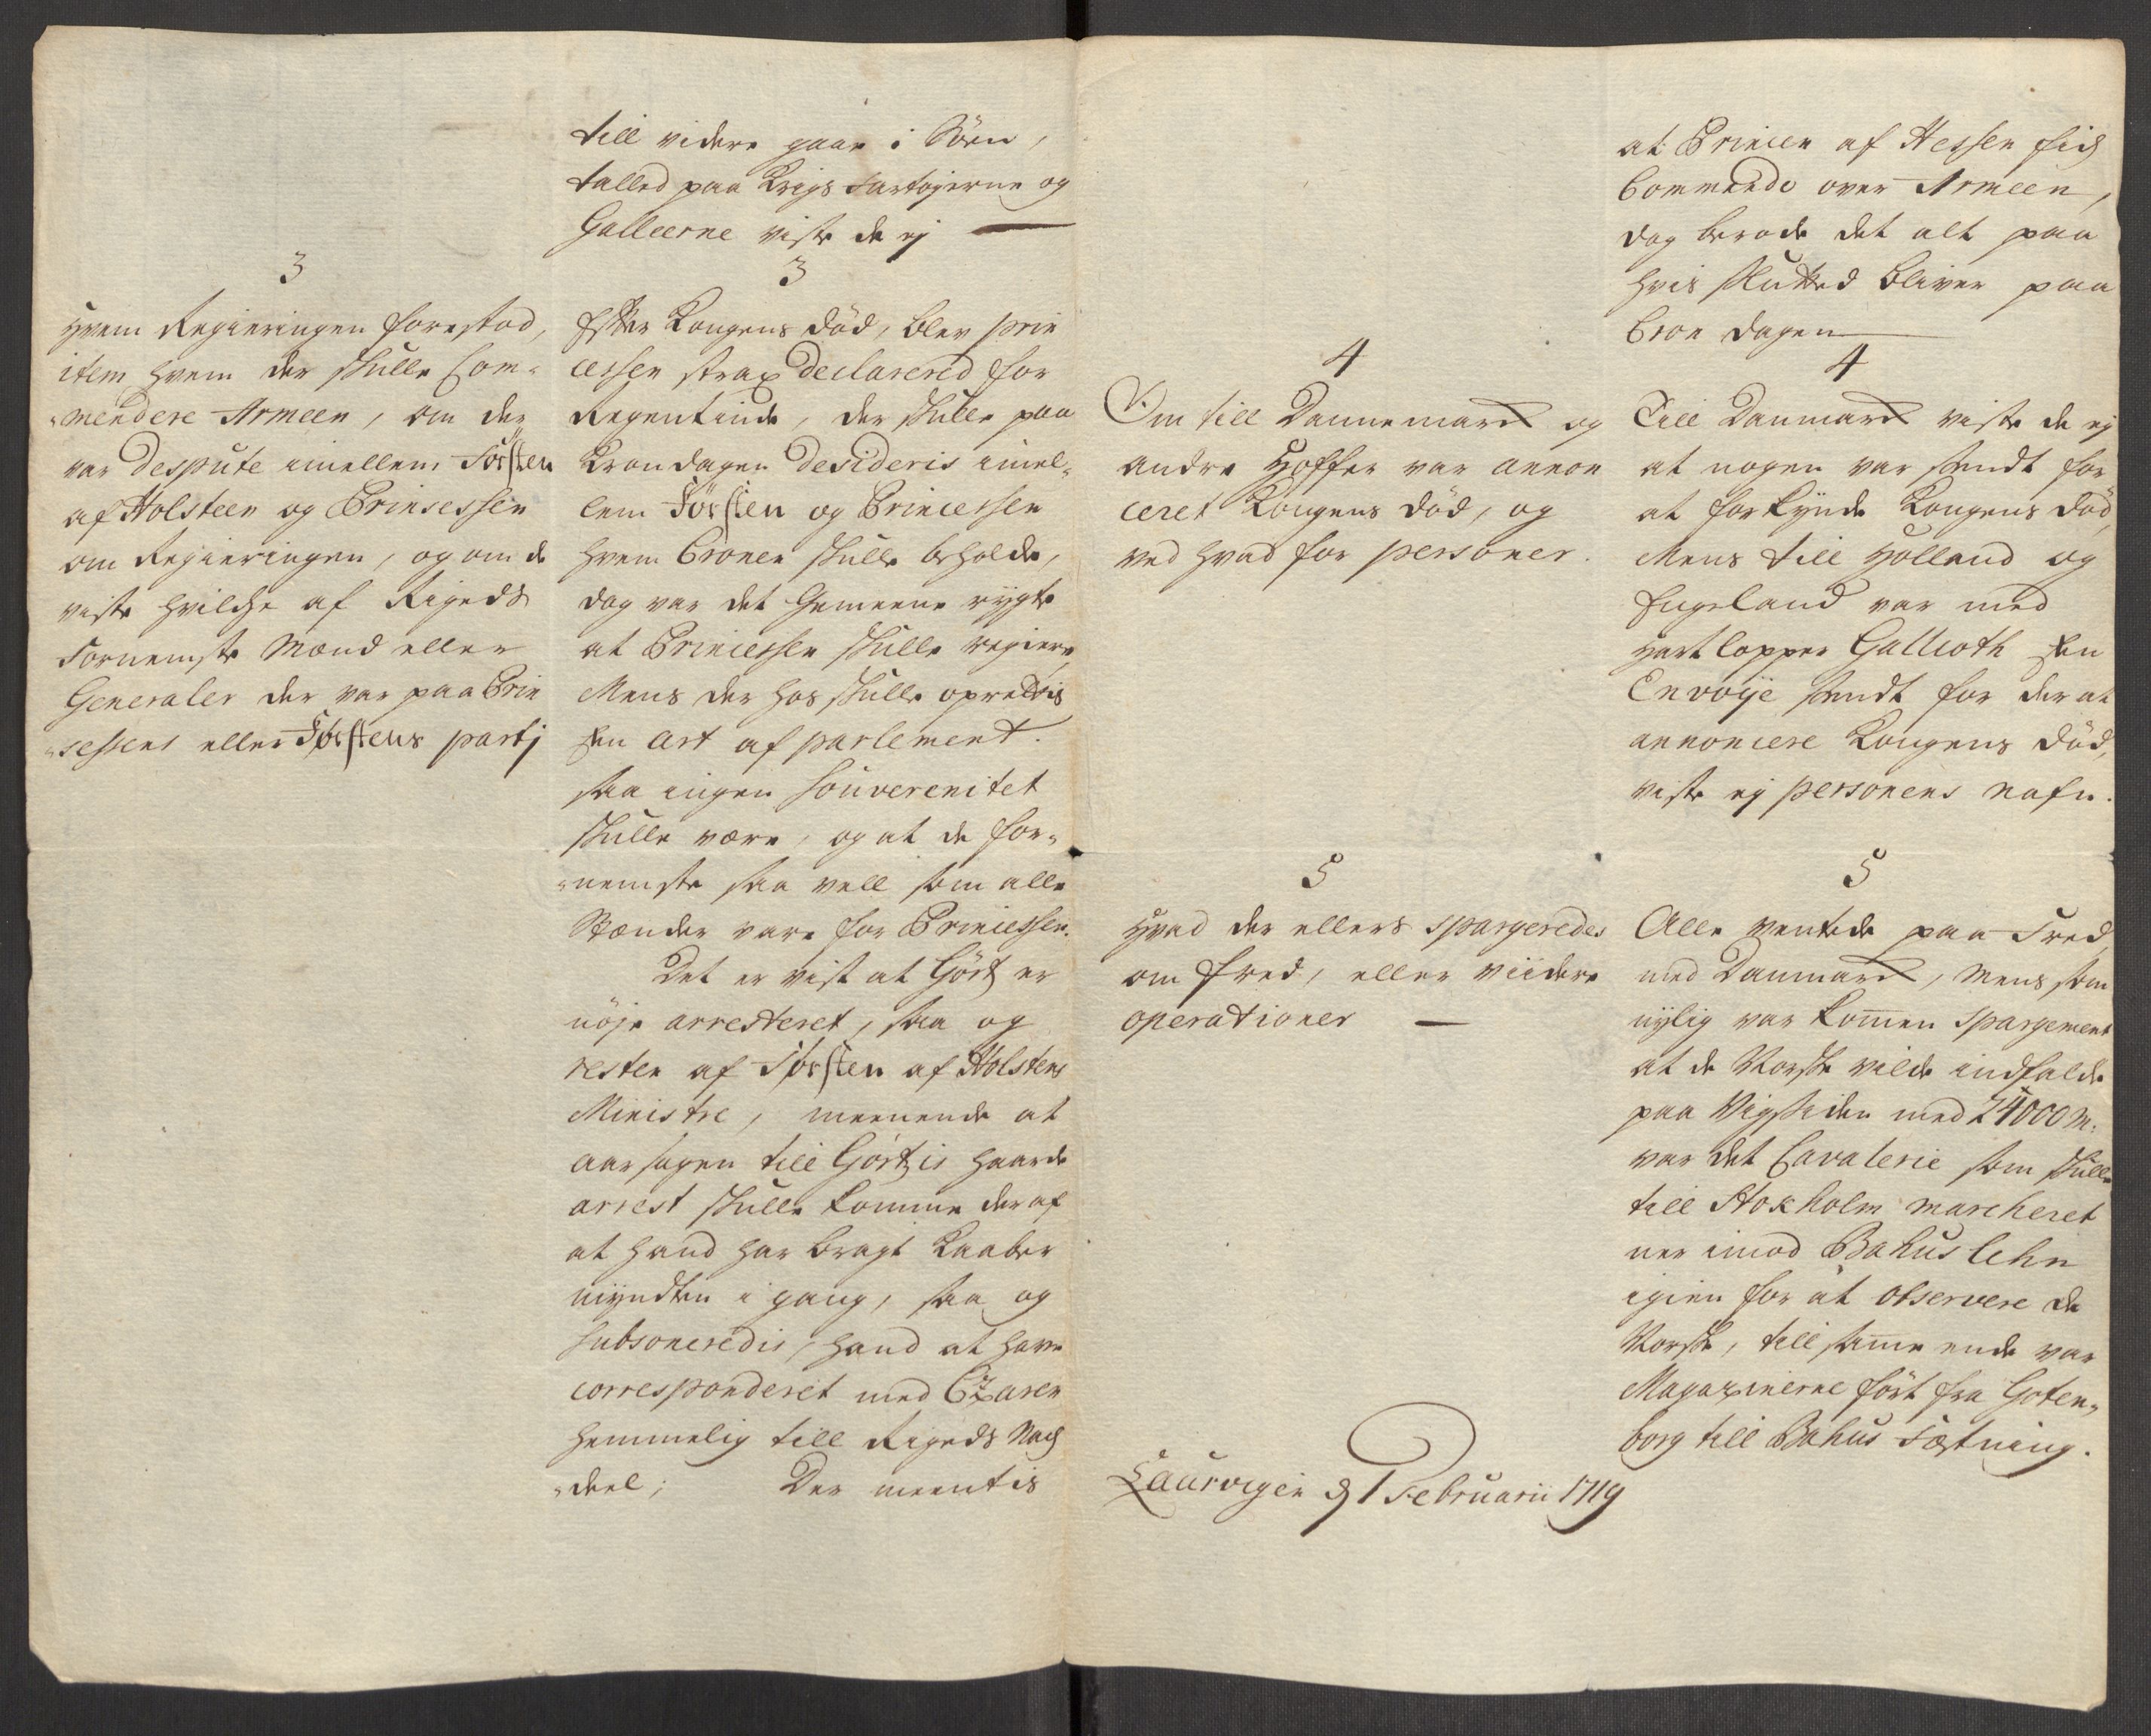 till videre gaar i Söen,
talled paa Krigs fartöjerne og
Galleerne viste de ej
3
Hvem Regieringen forestod,
item hvem der skulle Com-
mendere Armeen, om der
var despute imellem Försten
af Holsteen og Prinsessen
om Regieringen, og om de
viste hvilche af Rigeds
fornemste Mænd eller
Generaler der var paa Prin
sessens eller Förstens partj
3
Efter Kongens död, blev prin
cessen strax declarered for
Regentinde, der skulle paa
Krondagen desideris imel-
lem Försten og Princessen
hvem Cronen skulle beholde,
dog var det Gemeene rygte
at Princessen skulle regiere,
Mens der hos skulle oprettis
En art af parlement.
saa ingen Souverenitet
skulle være, og at de for-
nemste saa vell som alle
Stænder vare for Princessen.
Det er vist at Görtz er
nöje arresteret, saa og
resten af Försten af Holstens
Ministre, meenende at
aarsagen till Görtzis haarde
arrest skulle komme der af
at hand har bragt Kaaber
myndten i gang, saa og
subsoneredis, hand at have
corresponderet med Czaren
hemmelig till Rigeds Nach
deel; Der meentis
at Princen af Hessen fich
Commando over Armeen,
dog beroede det alt paa
hvis slutted bliver paa
Cron dagen
4
Om till Dannemarck og
andre Hoffer var annon
ceret Kongens död, og
ved hvad for personer.
4
Till Danmarck viste de ej
at nogen var sendt for
at forkynde Kongens död,
Mens till Holland og
Engeland var med
Hart lopper Gallioth En
Envoije sendt for der at
annoncere Kongens död,
viste ej personens nafn.
5
Hvad der ellers spargeredes
om fred, eller viidere
operationer
5
Alle ventede paa Fred
med Danmarck, mens som
nylig var kommen spargement
at de Norske vilde indfalde
paa Vigsiden med 24000 M.
var det Cavalerie som skulle
till Stokholm marcheret
ner imod Bahus lehn
igien for at observere de
Norske, till samme ende var
Magazinerne fört fra Goten-
borg till Bahus Fæstning.
Laurvigen d 1 Februarii 1719